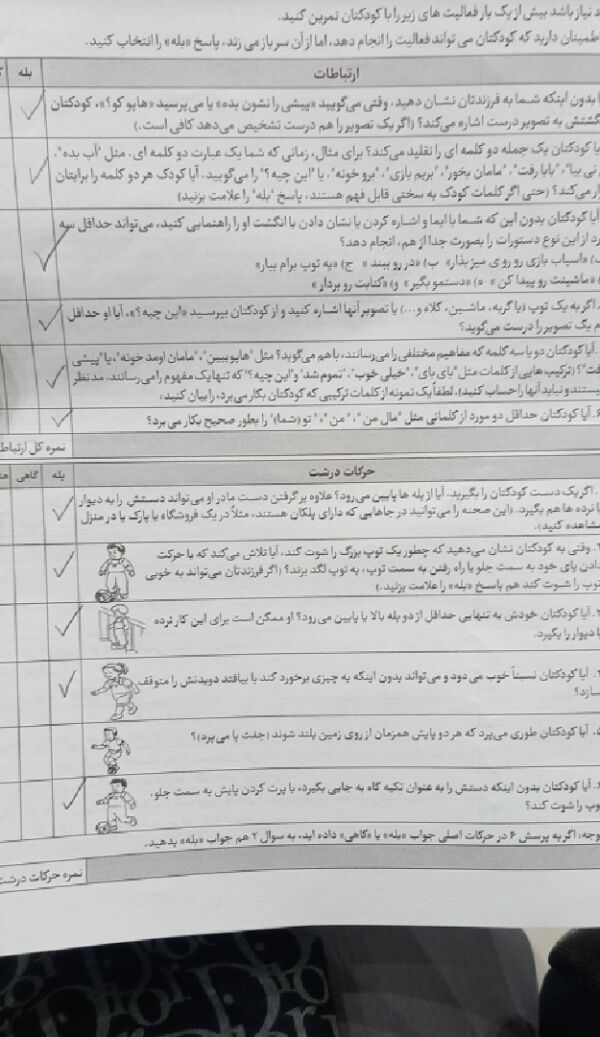 د نیاز باشد بیش از یک بار فعالیت های زیر را با کودکتان تمرین کنید.
اطمینان دارید که کودکتان می تواند فعالیت را انجام دهد، اما از آن سر باز می زند، پاسخ «بله» را انتخاب کنید.
ارتباطات بله
بدون اینکه شما به فرزندتان نشان دهید، وقتی می‌گویید «پیشی را نشون بده» یا می‌پرسید «هاپو کو؟»، کودکتان
نگشتش به تصویر درست اشاره می‌کند؟ (اگر یک تصویر را هم درست تشخیص می‌دهد کافی است.)
یا کودکتان یک جمله دو کلمه ای را تقلید می‌کند؟ برای مثال، زمانی که شما یک عبارت دو کلمه ای، مثل "آب بده"،
نی بیا"، "بابا رفت"، "مامان بخور"، "بریم بازی"، "برو خونه"، یا "این چیه؟" را می‌گویید، آیا کودک هر دو کلمه را برایتان
رار می‌کند؟ (حتی اگر کلمات کودک به سختی قابل فهم هستند، پاسخ "بله" را علامت بزنید)
آیا کودکتان بدون این که شما با ایما و اشاره کردن یا نشان دادن با انگشت او را راهنمایی کنید، می‌تواند حداقل سه
رد از این نوع دستورات را بصورت جدا از هم، انجام دهد؟
«اسباب بازی رو روی میز بذار» ب) «در رو ببند» ج) «یه توپ برام بیار»
«ماشینت رو پیدا کن» ه) «دستمو بگیر» و) «کتابت رو بردار»
اگر به یک توپ (یا گربه، ماشین، کلاه و...) یا تصویر آنها اشاره کنید و از کودکتان بپرسید «این چیه؟»، آیا او حداقل
م یک تصویر را درست می‌گوید؟
آیا کودکتان دو یا سه کلمه که مفاهیم مختلفی را می‌رسانند، با هم می‌گوید؟ مثل "هاپو ببین"، "مامان اومد خونه"، یا "پیشی
فت"؟ (ترکیب هایی از کلمات مثل "بای بای"، "خیلی خوب"، "تموم شد" و "این چیه؟" که تنها یک مفهوم را می‌رسانند، مد نظر
نیستند و نباید آنها را حساب کنید). لطفاً یک نمونه از کلمات ترکیبی که کودکتان بکار می‌برد، را بیان کنید:
۶. آیا کودکتان حداقل دو مورد از کلماتی مثل "مال من"، "من"، "تو (شما)" را بطور صحیح بکار می برد؟
نمره کل ارتباطا
حرکات درشت بله گاهی هن
. اگر یک دست کودکتان را بگیرید، آیا از پله ها پایین می‌رود؟ علاوه بر گرفتن دست مادر او می‌تواند دستش را به دیوار
یا نرده ها هم بگیرد. (این صحنه را می‌توانید در جاهایی که دارای پلکان هستند، مثلاً در یک فروشگاه یا پارک یا در منزل
مشاهده کنید).
۲. وقتی به کودکتان نشان می‌دهید که چطور یک توپ بزرگ را شوت کند، آیا تلاش می‌کند که با حرکت
دادن پای خود به سمت جلو یا راه رفتن به سمت توپ، به توپ لگد بزند؟ (اگر فرزندتان می‌تواند به خوبی
توپ را شوت کند هم پاسخ «بله» را علامت بزنید.)
۳. آیا کودکتان خودش به تنهایی حداقل از دو پله بالا یا پایین می رود؟ او ممکن است برای این کار نرده
یا دیوار را بگیرد.
۴. آیا کودکتان نسبتاً خوب می دود و می‌تواند بدون اینکه به چیزی برخورد کند یا بیافتد دویدنش را متوقف
سازد؟
۵. آیا کودکتان طوری می‌پرد که هر دو پایش همزمان از روی زمین بلند شوند (جفت پا می‌پرد)؟
۶. آیا کودکتان بدون اینکه دستش را به عنوان تکیه گاه به جایی بگیرد، با پرت کردن پایش به سمت جلو،
توپ را شوت کند؟
وجه: اگر به پرسش ۶ در حرکات اصلی جواب «بله» یا «گاهی» داده اید، به سوال ۲ هم جواب «بله» بدهید.
نمره حرکات درشت
Dior